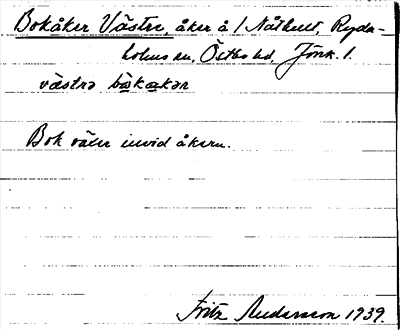 Bokåker Västre, åker å 1 Nåthult, Ryda-
holms sn, Östbo hd, Jönk. l.
västrə bokakər
Bok växer invid åkern.
Fritz Andersson 1939.